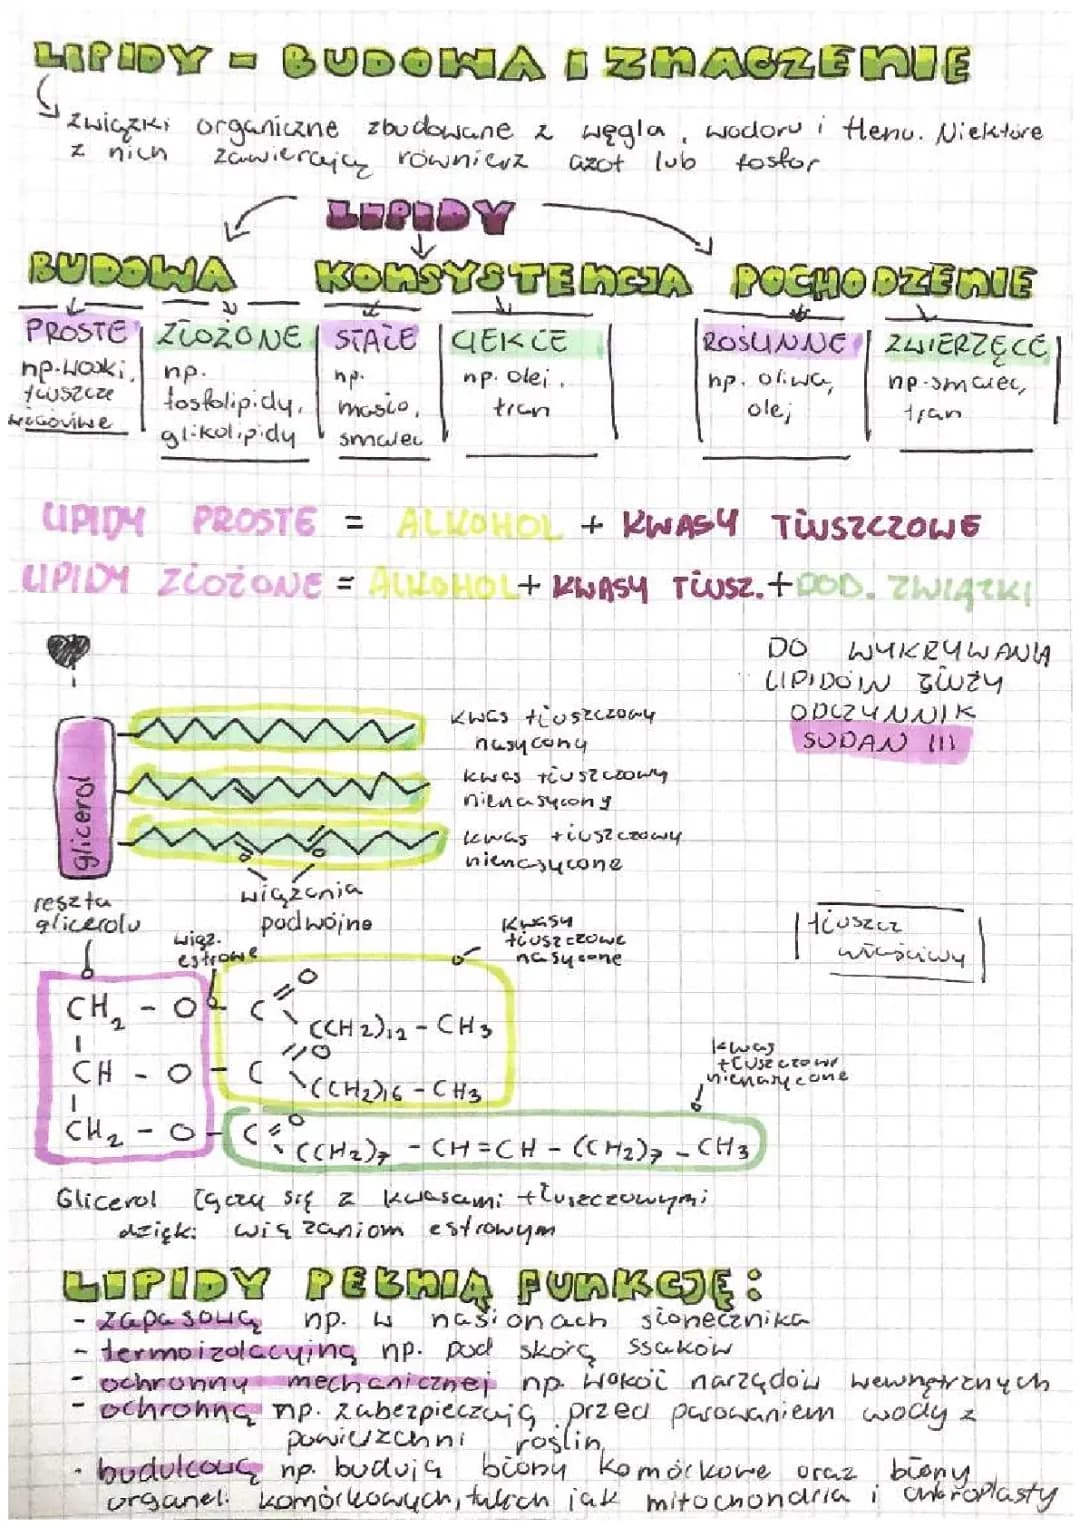 LIPIDY - BUDOWA I ZNACZENIE
związki organiczne zbudowane z węgla, wodoru i tlenu. Niektóre
z nich zawierają równierz azot lub fosfor
LIPIDY
BUDOWA KONSYSTENCJA POCHODZENIE
PROSTE ZŁOŻONE STAŁE CIEKŁE ROŚLINNE ZWIERZĘCE
np. woski, np. np. np. olej, np. oliwa, np. smalec,
tłuszcze fosfolipidy, masło, tran olej tran
właściwe glikolipidy smalec
LIPIDY PROSTE = ALKOHOL + KWASY TŁUSZCZOWE
LIPIDY ZŁOŻONE = ALKOHOL + KWASY TŁUSZ. + DOD. ZWIĄZKI
DO WYKRYWANIA
LIPIDÓW SŁUŻY
ODCZYNNIK
SUDAN III
glicerol
kwas tłuszczowy
nasycony
kwas tłuszczowy
nienasycony
kwas tłuszczowy
nienasycone
wiązania
podwójne
reszta
glicerolu
wiąz.
estrowe
kwasy
tłuszczowe
nasycone
tłuszcz
właściwy
CH2 - O C =O
(CH2)12 - CH3
CH - O - C =O
(CH2)16 - CH3
kwas
tłuszczowe
nienasycone
CH2 - O - C =O
(CH2)7 - CH=CH - (CH2)7 - CH3
Glicerol łączy się z kwasami tłuszczowymi
dzięki wiązaniom estrowym
LIPIDY PEŁNIĄ FUNKCJĘ:
- zapasową np. w nasionach słonecznika
- termoizolacyjną np. pod skórą ssaków
- ochronny mechanicznej np. wokół narządów wewnętrznych
- ochronną np. zabezpieczają przed parowaniem wody z
powierzchni roślin
- budulcową np. budują błony komórkowe oraz błony
organelli komórkowych, takich jak mitochondria i chloroplasty